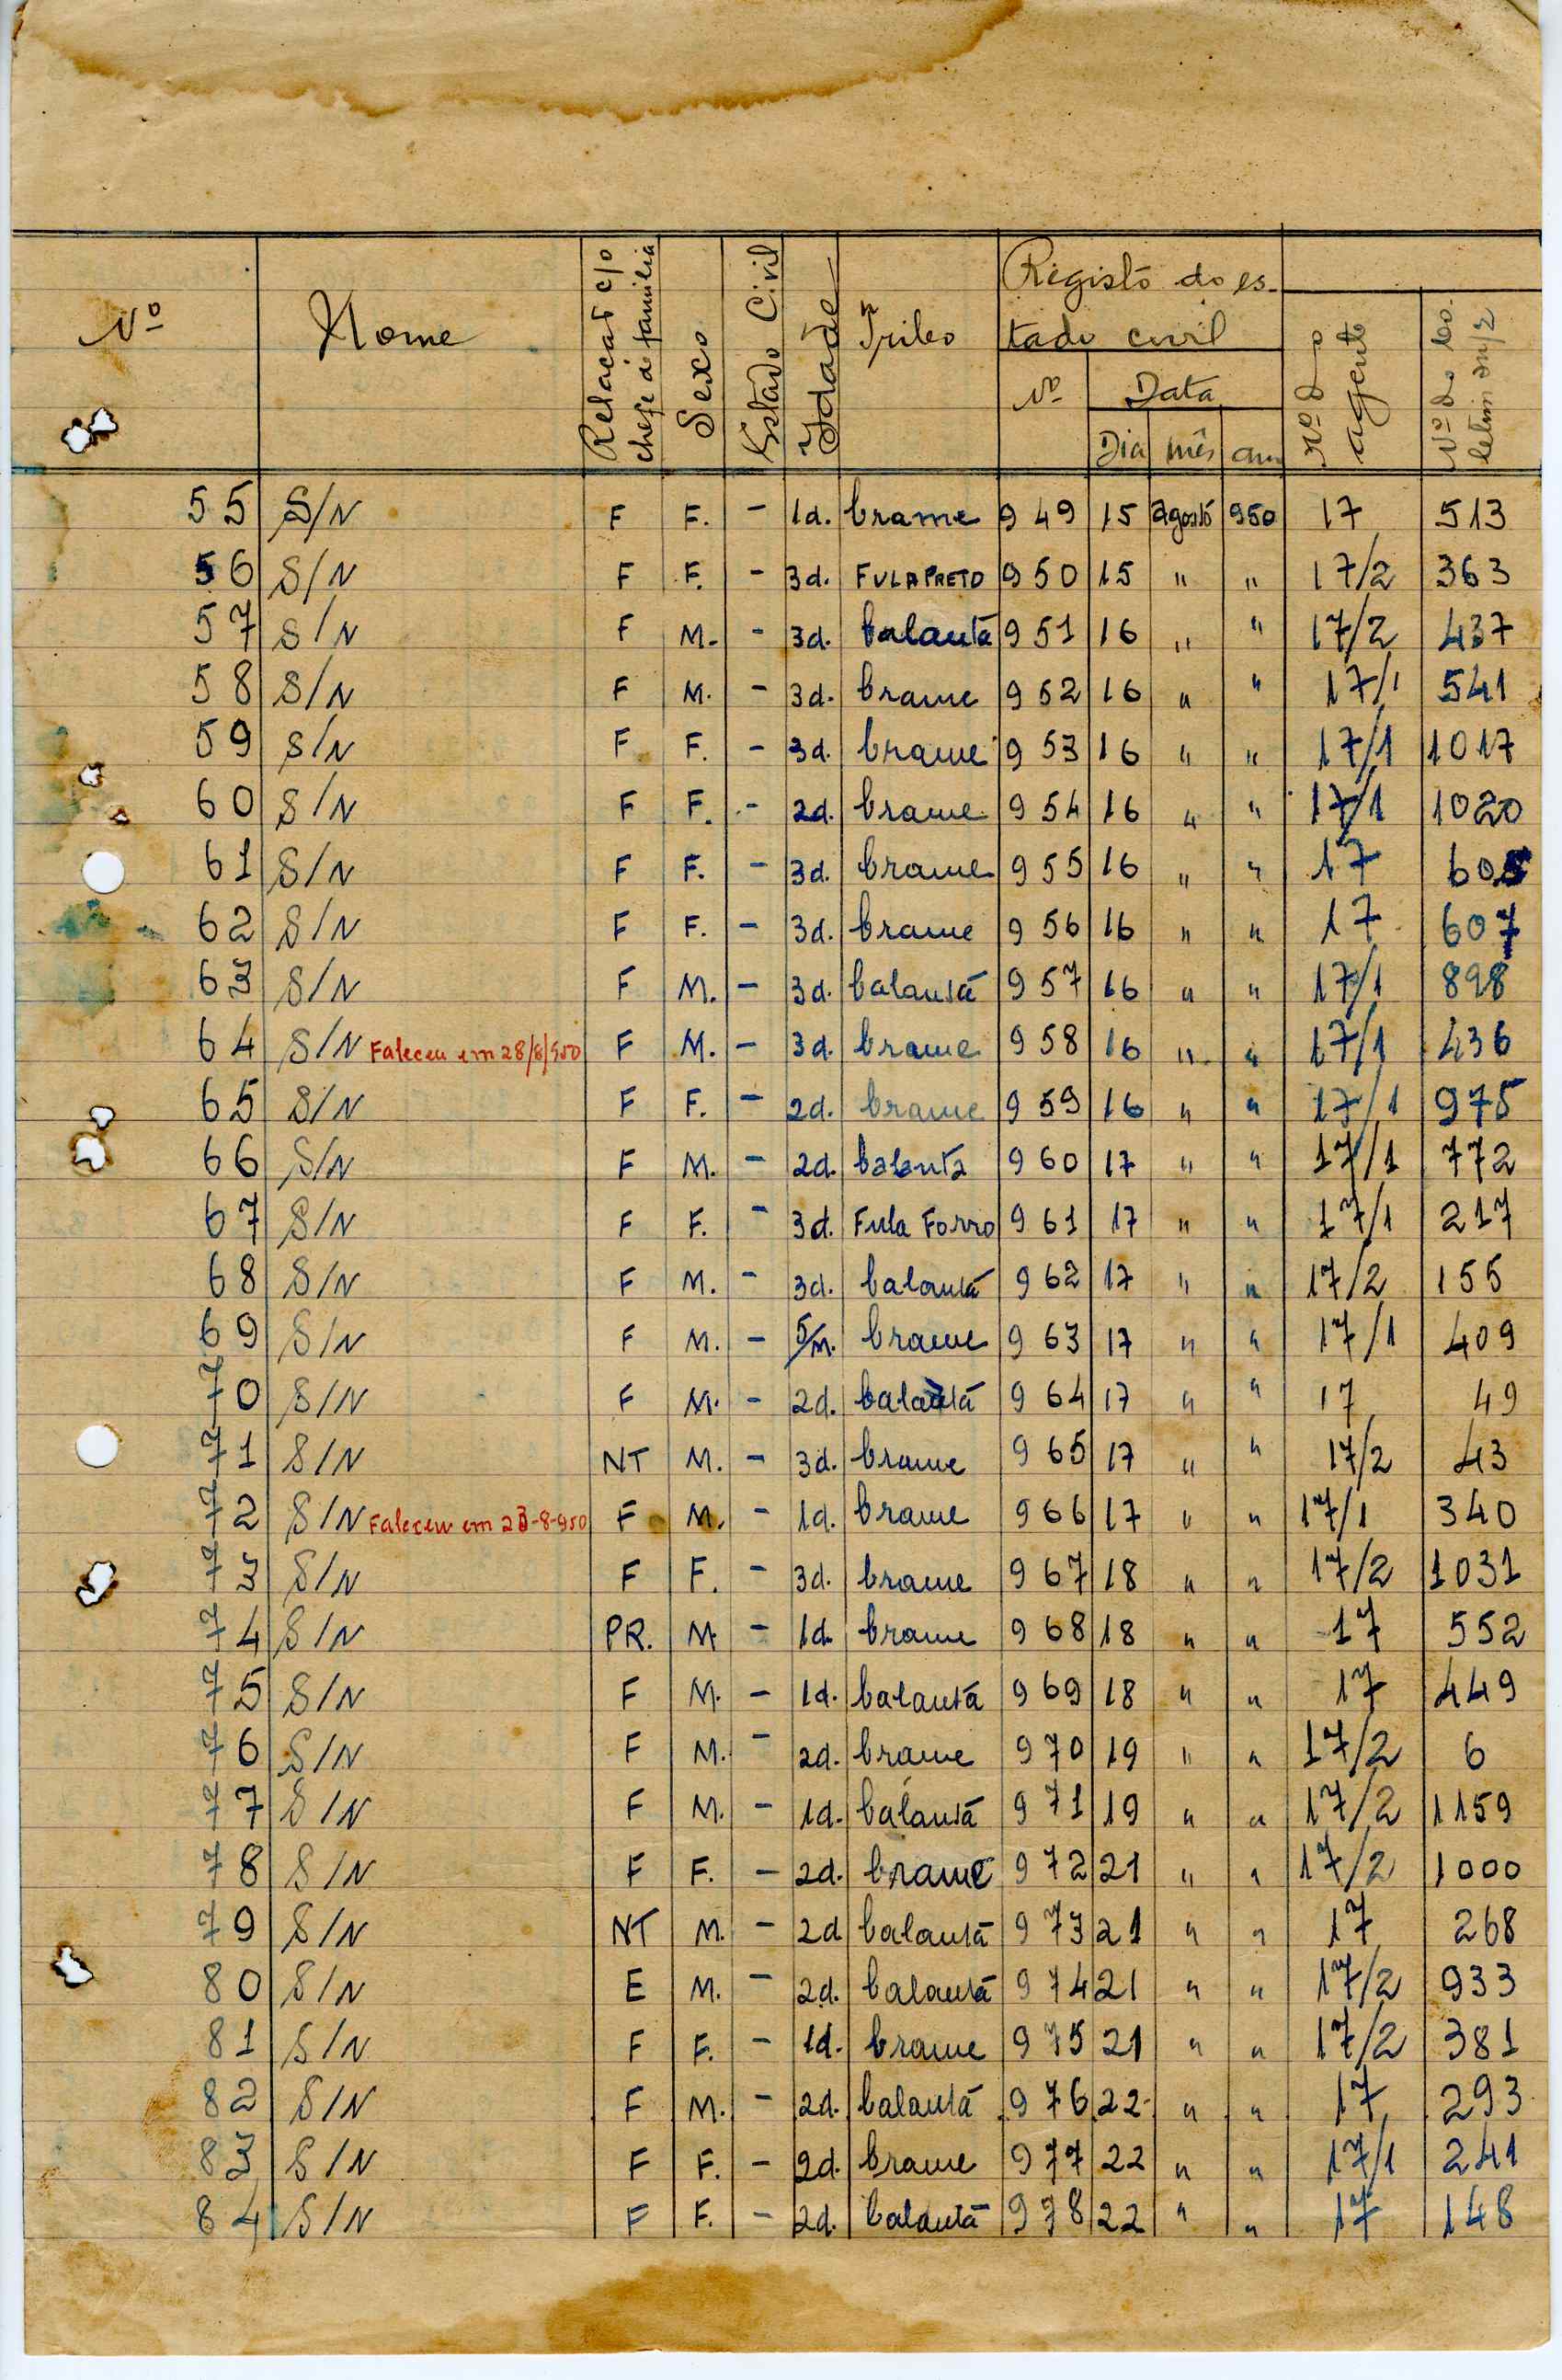 Nº Nome Relação c/o chefe de família Sexo Estado Civil Idade Tribo Registo do es-
tado civil
Nº Data Nº do agente Nº do bo-
letim
Dia mês ano
55 S/N F F. - 1d. brame 949 15 agosto 950 17 513
56 S/N F F. - 3d. FULA PRETO 950 15 " " 17/2 363
57 S/N F M. - 3d. balanta 951 16 " " 17/2 437
58 S/N F M. - 3d. brame 952 16 " " 17/1 541
59 S/N F F. - 3d. brame 953 16 " " 17/1 1017
60 S/N F F. - 2d. brame 954 16 " " 17/1 1020
61 S/N F F. - 3d. brame 955 16 " " 17 605
62 S/N F F. - 3d. brame 956 16 " " 17 607
63 S/N F M. - 3d. balanta 957 16 " " 17/1 898
64 S/N Faleceu em 28/8/950 F M. - 3d. brame 958 16 " " 17/1 436
65 S/N F F. - 2d. brame 959 16 " " 17/1 975
66 S/N F M. - 2d. balanta 960 17 " " 17/1 772
67 S/N F F. - 3d. Fula Forro 961 17 " " 17/1 217
68 S/N F M. - 3d. balanta 962 17 " " 17/2 155
69 S/N F M. - 5/M. brame 963 17 " " 17/1 409
70 S/N F M. - 2d. balanta 964 17 " " 17 49
71 S/N NT M. - 3d. brame 965 17 " " 17/2 43
72 S/N Faleceu em 23-8-950 F M. - 1d. brame 966 17 " " 17/1 340
73 S/N F F. - 3d. brame 967 18 " " 17/2 1031
74 S/N PR. M - 1d. brame 968 18 " " 17 552
75 S/N F M. - 1d. balanta 969 18 " " 17 449
76 S/N F M. - 2d. brame 970 19 " " 17/2 6
77 S/N F M. - 1d. balanta 971 19 " " 17/2 1159
78 S/N F F. - 2d. brame 972 21 " " 17/2 1000
79 S/N NT M. - 2d balanta 973 21 " " 17 268
80 S/N E M. - 2d. balanta 974 21 " " 17/2 933
81 S/N F F. - 1d. brame 975 21 " " 17/2 381
82 S/N F M. - 2d. balanta 976 22 " " 17 293
83 S/N F F. - 2d. brame 977 22 " " 17/1 241
84 S/N F F. - 2d. balanta 978 22 " " 17 148